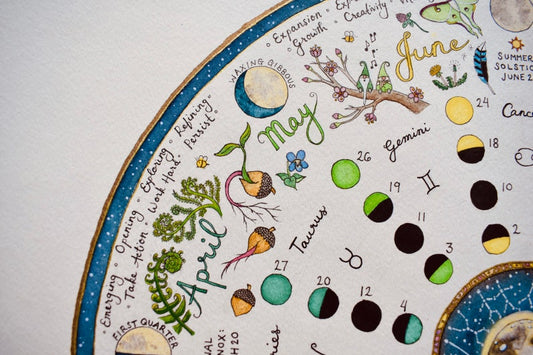 Expansion
Growth
Creativity
WAXING GIBBOUS
Refining
Persist
Exploring
Work Hard
Opening
Take Action
Emerging
FIRST QUARTER
June
SUMMER
SOLSTIC
JUNE 2
May
April
Cance
Gemini
♊
Taurus
♉
24
18
10
2
26
19
11
3
27
20
12
4
H20